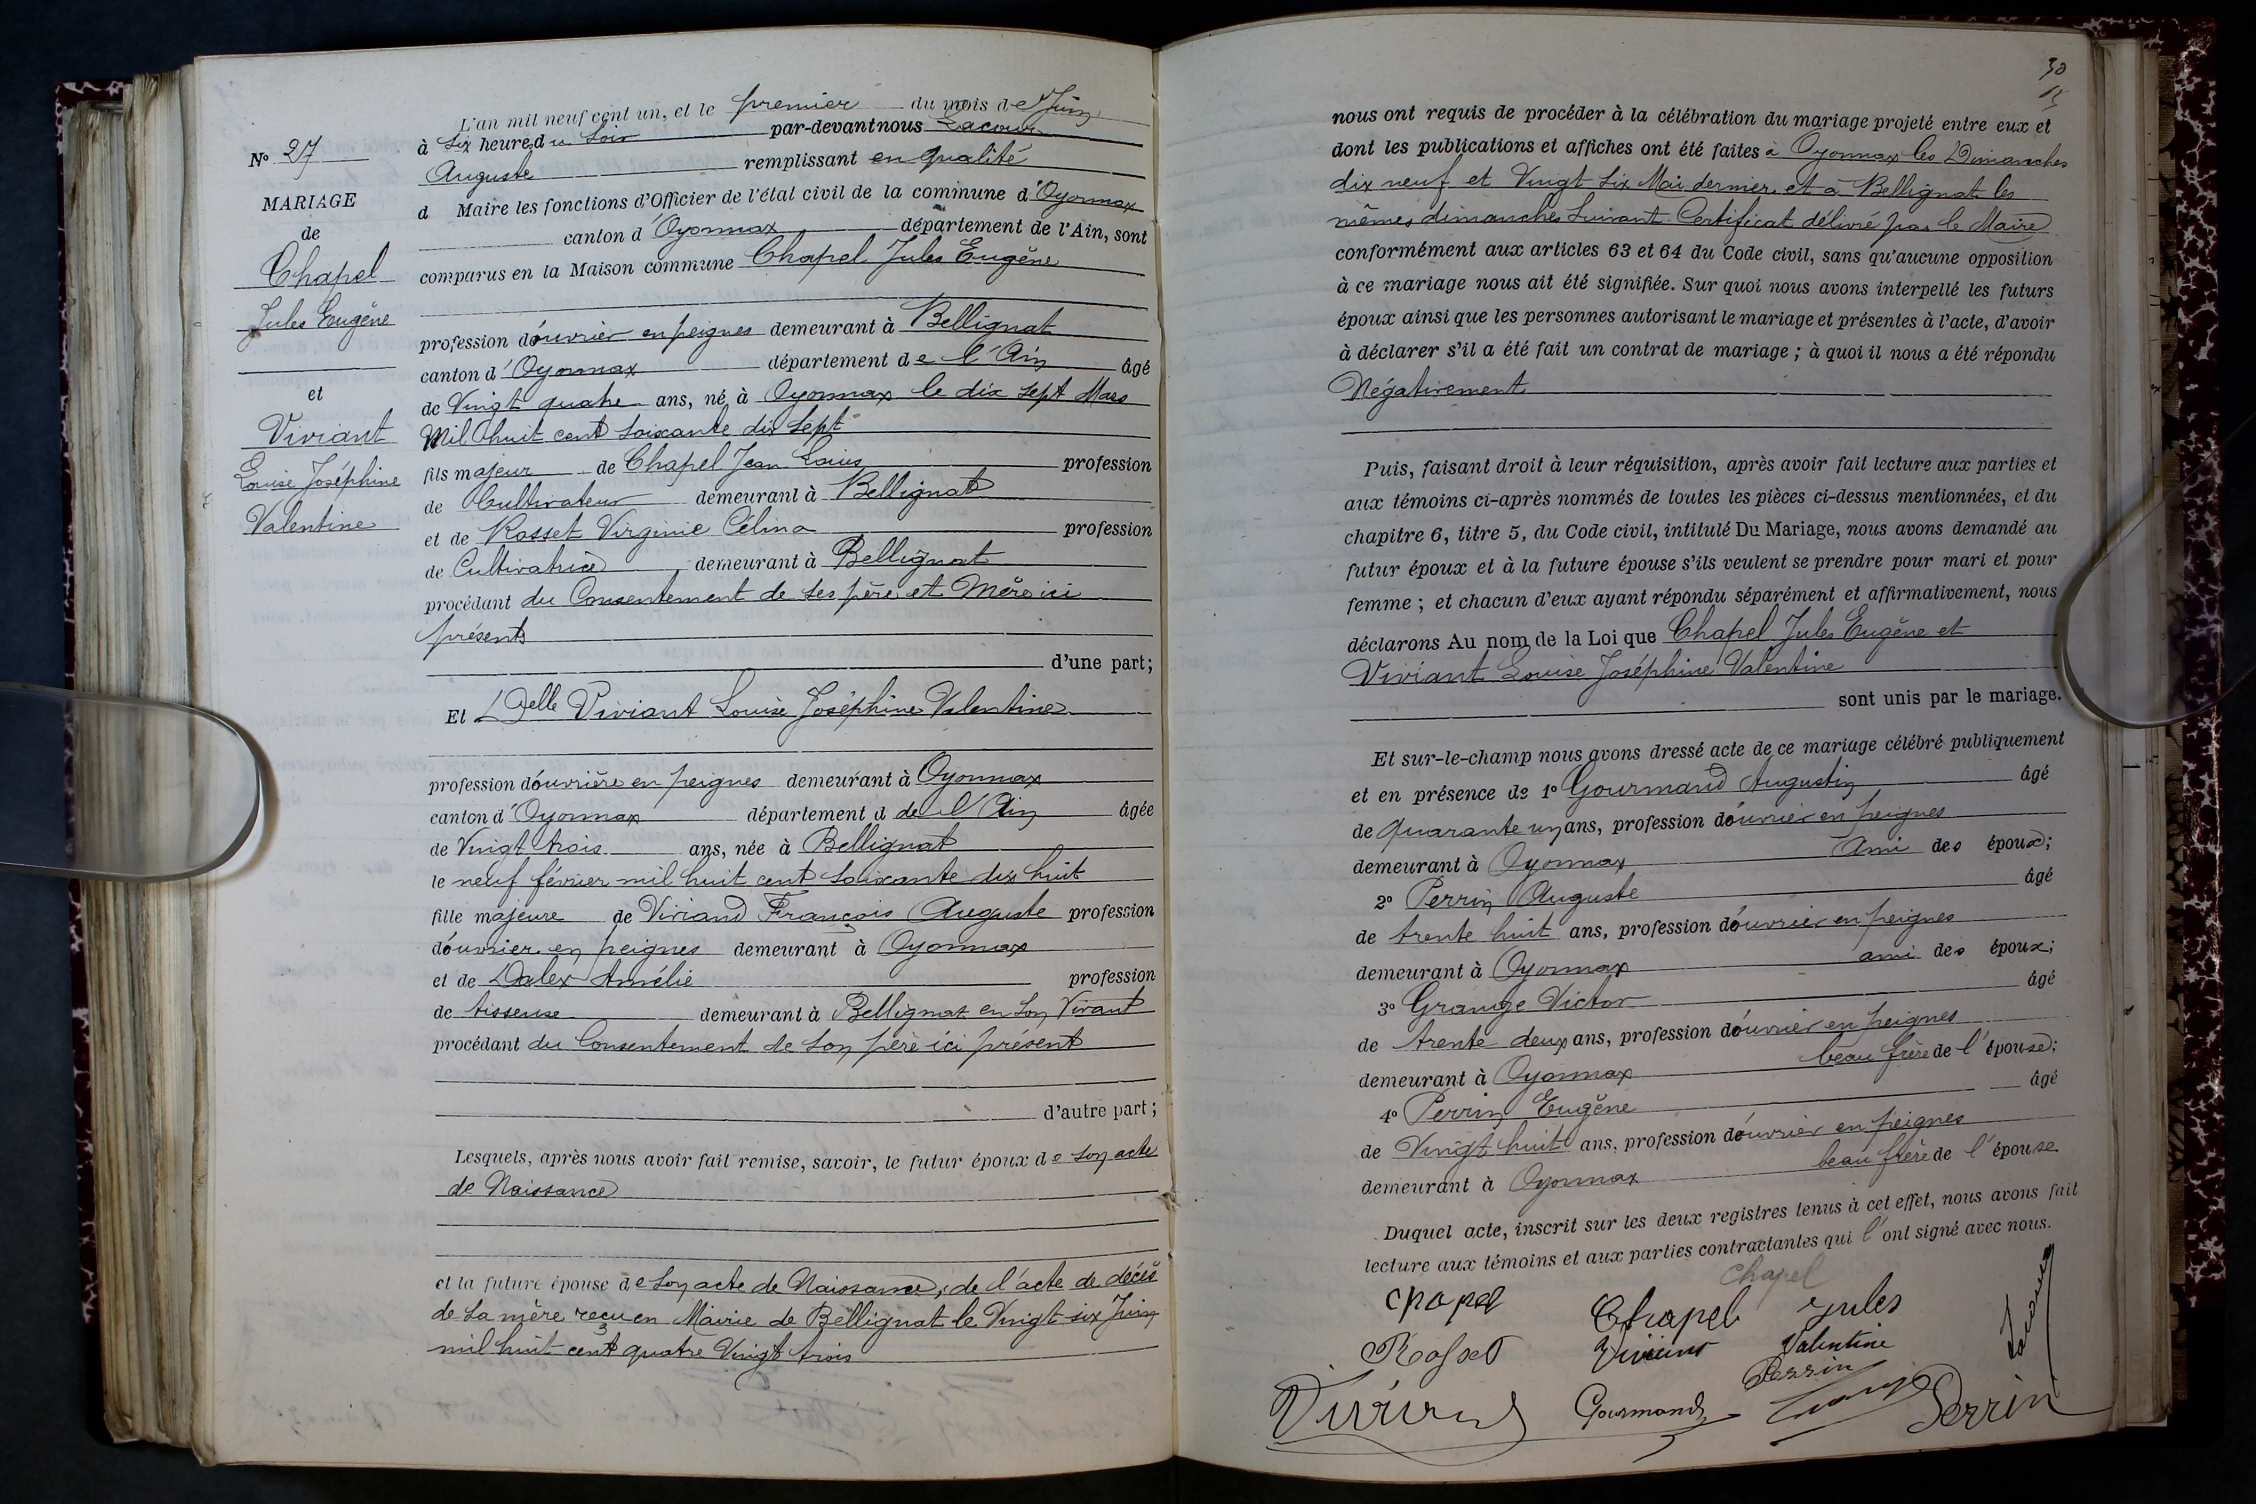 L'an mil neuf cent un, et le premier du mois de Juin
à six heure du soir par-devant nous Lacour
Auguste remplissant en qualité
d Maire les fonctions d'Officier de l'état civil de la commune d'Oyonnax
canton d'Oyonnax département de l'Ain, sont
comparus en la Maison commune Chapel Jules Eugène
profession d'ouvrier en peignes demeurant à Bellignat
canton d'Oyonnax département de l'Ain âgé
de Vingt quatre ans, né à Oyonnax le dix sept Mars
Mil huit cent soixante dix sept
fils majeur de Chapel Jean Louis profession
de Cultivateur demeurant à Bellignat
et de Rosset Virginie Célina profession
de Cultivatrice demeurant à Bellignat
procédant du Consentement de ses père et Mère ici
présents
d'une part;
Et Delle Viviant Louise Joséphine Valentine
profession d'ouvrière en peignes demeurant à Oyonnax
canton d'Oyonnax département d de l'Ain âgée
de Vingt trois ans, née à Bellignat
le neuf février mil huit cent soixante dix huit
fille majeure de Viviand François Auguste profession
d'ouvrier en peignes demeurant à Oyonnax
et de Dalex Amélie profession
de tisseuse demeurant à Bellignat en son Vivant
procédant du Consentement de son père ici présent
d'autre part;
Lesquels, après nous avoir fait remise, savoir, le futur époux de son acte
de Naissance
et la future épouse de son acte de Naissance, de l'acte de décès
de sa mère reçu en Mairie de Bellignat le Vingt six Juin
mil huit cent quatre Vingt trois
N° 27
MARIAGE
de
Chapel
Jules Eugène
et
Viviant
Louise Joséphine
Valentine
30
nous ont requis de procéder à la célébration du mariage projeté entre eux et
dont les publications et affiches ont été faites à Oyonnax les Dimanches
dix neuf et Vingt six Mai dernier et à Bellignat les
mêmes dimanches suivant Certificat délivré par le Maire
conformément aux articles 63 et 64 du Code civil, sans qu'aucune opposition
à ce mariage nous ait été signifiée. Sur quoi nous avons interpellé les futurs
époux ainsi que les personnes autorisant le mariage et présentes à l'acte, d'avoir
à déclarer s'il a été fait un contrat de mariage; à quoi il nous a été répondu
Négativement
Puis, faisant droit à leur réquisition, après avoir fait lecture aux parties et
aux témoins ci-après nommés de toutes les pièces ci-dessus mentionnées, et du
chapitre 6, titre 5, du Code civil, intitulé Du Mariage, nous avons demandé au
futur époux et à la future épouse s'ils veulent se prendre pour mari et pour
femme; et chacun d'eux ayant répondu séparément et affirmativement, nous
déclarons Au nom de la Loi que Chapel Jules Eugène et
Viviant Louise Joséphine Valentine
sont unis par le mariage.
Et sur-le-champ nous avons dressé acte de ce mariage célébré publiquement
et en présence de 1° Gourmand Augustin âgé
de quarante un ans, profession d'ouvrier en peignes
demeurant à Oyonnax Ami des époux;
2° Perrin Auguste âgé
de trente huit ans, profession d'ouvrier en peignes
demeurant à Oyonnax ami des époux;
3° Grange Victor âgé
de trente deux ans, profession d'ouvrier en peignes
demeurant à Oyonnax beau frère de l'épouse;
4° Perrin Eugène âgé
de Vingt huit ans, profession d'ouvrier en peignes
demeurant à Oyonnax beau frère de l'épouse
Duquel acte, inscrit sur les deux registres tenus à cet effet, nous avons fait
lecture aux témoins et aux parties contractantes qui l'ont signé avec nous.
Chapel
Chapel Chapel Jules
Rosset Viviant Valentine
Perrin
Viviand Gourmand Perrin
Lacour